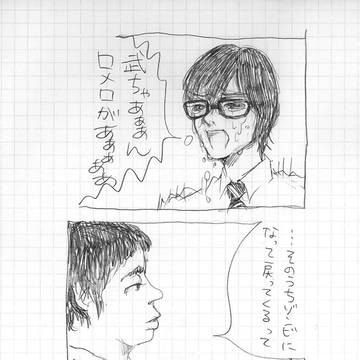 武ちゃあぁぁん
ロメロがあぁぁぁあ
…そのうちゾンビに
なって戻ってくるって